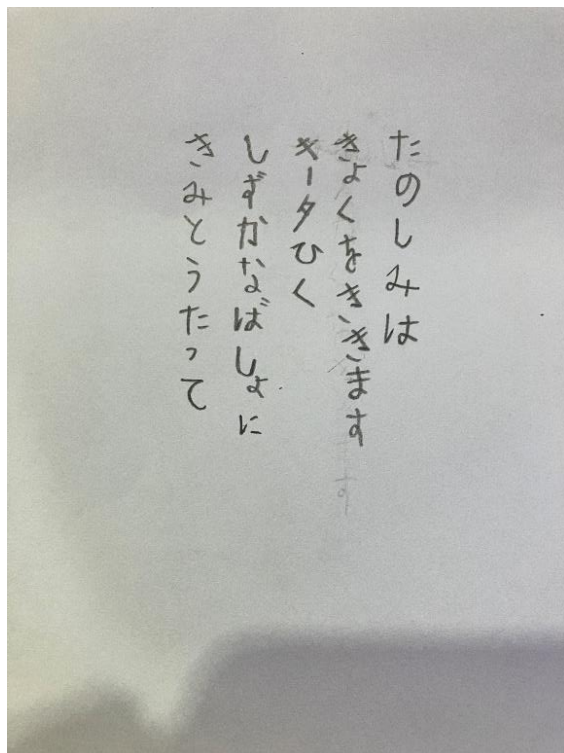 たのしみは
きょくをききます
ギータひく
しずかなばしょに
きみとうたって